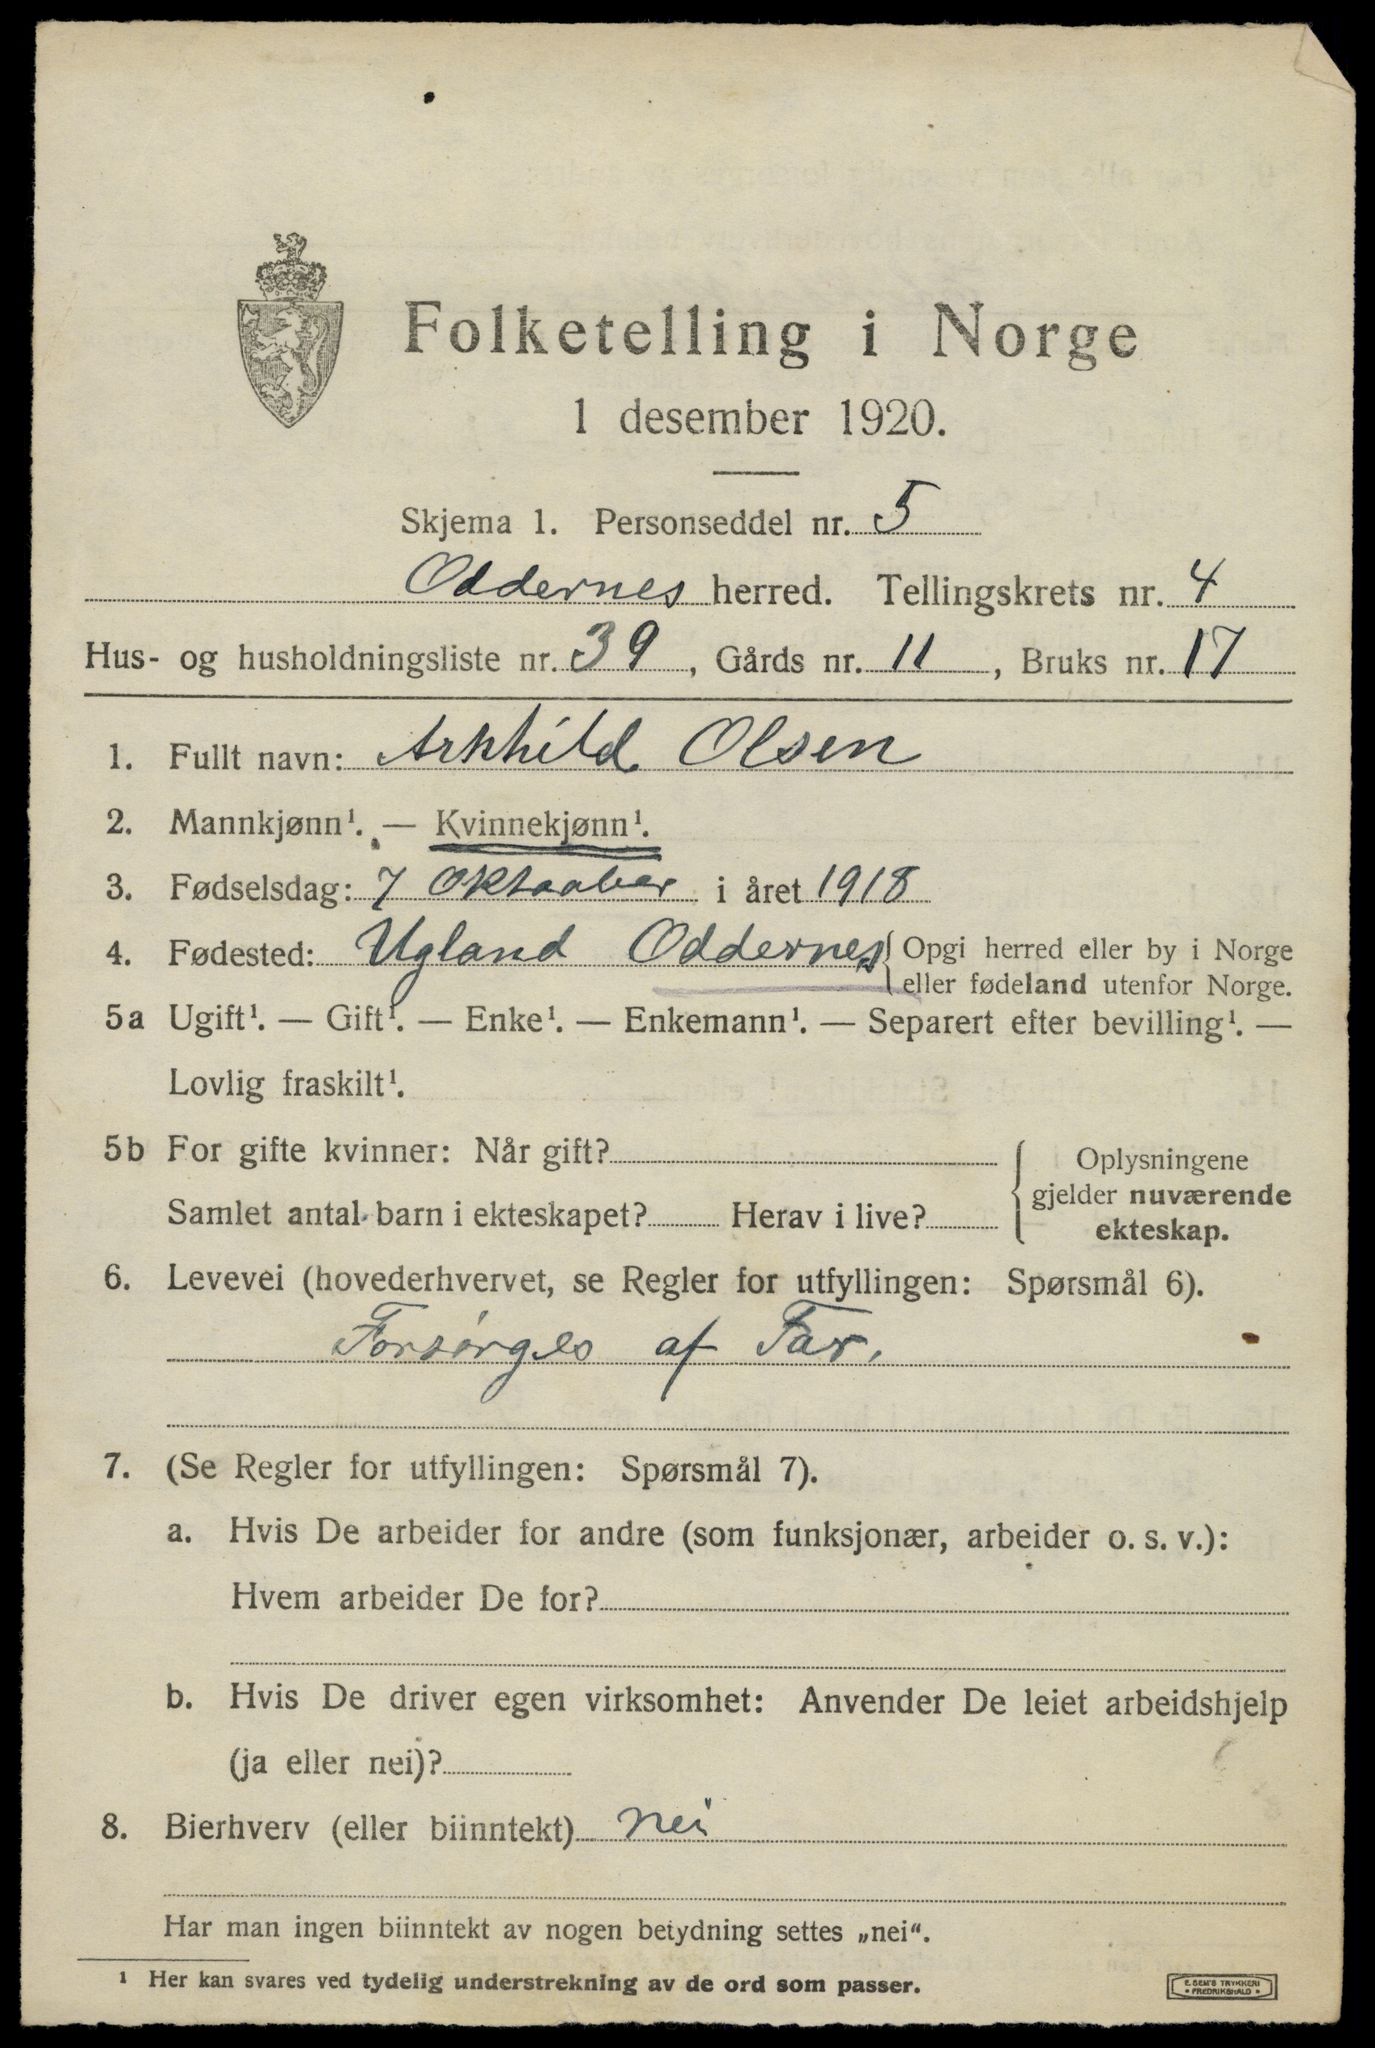 Folketelling i Norge
1 desember 1920.
Skjema 1. Personseddel nr. 5
Oddernes herred. Tellingskrets nr. 4
Hus- og husholdningsliste nr. 39, Gårds nr. 11, Bruks nr. 17
1. Fullt navn: Olsen
2. Mannkjønn¹. — Kvinnekjønn¹.
3. Fødselsdag: 7 Oktaaber i året 1918
4. Fødested: Ugland Oddernes { Opgi herred eller by i Norge
eller fødeland utenfor Norge.
5a Ugift¹. — Gift¹. — Enke¹. — Enkemann¹. — Separert efter bevilling¹. —
Lovlig fraskilt¹.
5b For gifte kvinner: Når gift?
Samlet antal barn i ekteskapet? Herav i live?
{ Oplysningene
gjelder nuværende
ekteskap.
6. Levevei (hovederhvervet, se Regler for utfyllingen: Spørsmål 6).
Forsørges af Far.
7. (Se Regler for utfyllingen: Spørsmål 7).
a. Hvis De arbeider for andre (som funksjonær, arbeider o. s. v.):
Hvem arbeider De for?
b. Hvis De driver egen virksomhet: Anvender De leiet arbeidshjelp
(ja eller nei)?
8. Bierhverv (eller biinntekt) nei
Har man ingen biinntekt av nogen betydning settes „nei“.
¹ Her kan svares ved tydelig understrekning av de ord som passer.
E. SEM'S TRYKKERI
• FREDRIKSHALD •